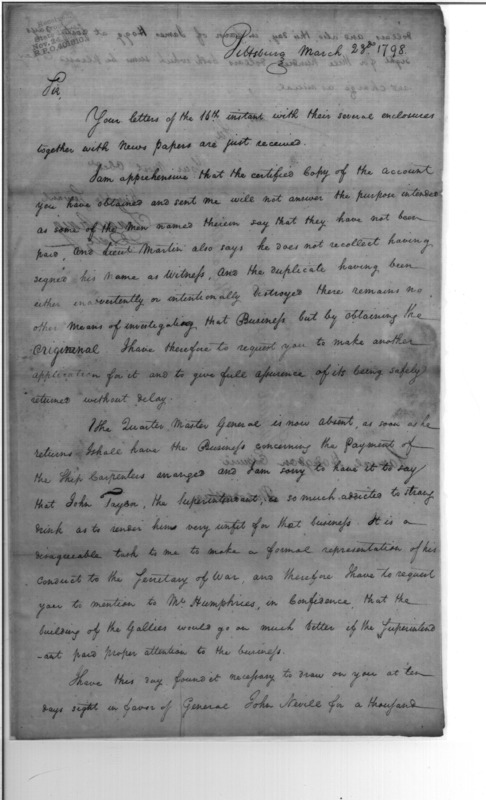 Pittsburg March 23d 1798
Sir,
Your letters of the 16th instant with their several enclosures
together with News papers are just received.
I am apprehensive that the certified Copy of the account
you have obtained and sent me will not answer the purpose intended
as some of the Men named therein say that they have not been
paid, And Lieut Martin also says he does not recollect having
signed his name as Witness, And the duplicate having been
either inadvertently or intentionally destroyed there remains no
other means of investigating that Business but by obtaining the
Original I have therefore to request you to make another
application for it and to give full assurence of its being safely
returned without delay.
The Quarter Master General is now Absent, as soon as he
returns I shall have the Business concerning the Payment of
the Ship Carpenters arranged and I am sorry to have it to say
that John Taylor, the Superintendant, is so much addicted to strong
drink as to render him very unfit for that business. It is a
disagreeable task to me to make a formal representation of his
Conduct to the Secretary of War, and therefore I have to request
you to mention to Mr Humphries, in Confidence, that the
building of the Gallies would go on much better if the Superintend
-ant paid proper attention to the business.
I have this day found it necessary to draw on you at ten
days sight in favor of General John Nevill for a thousand